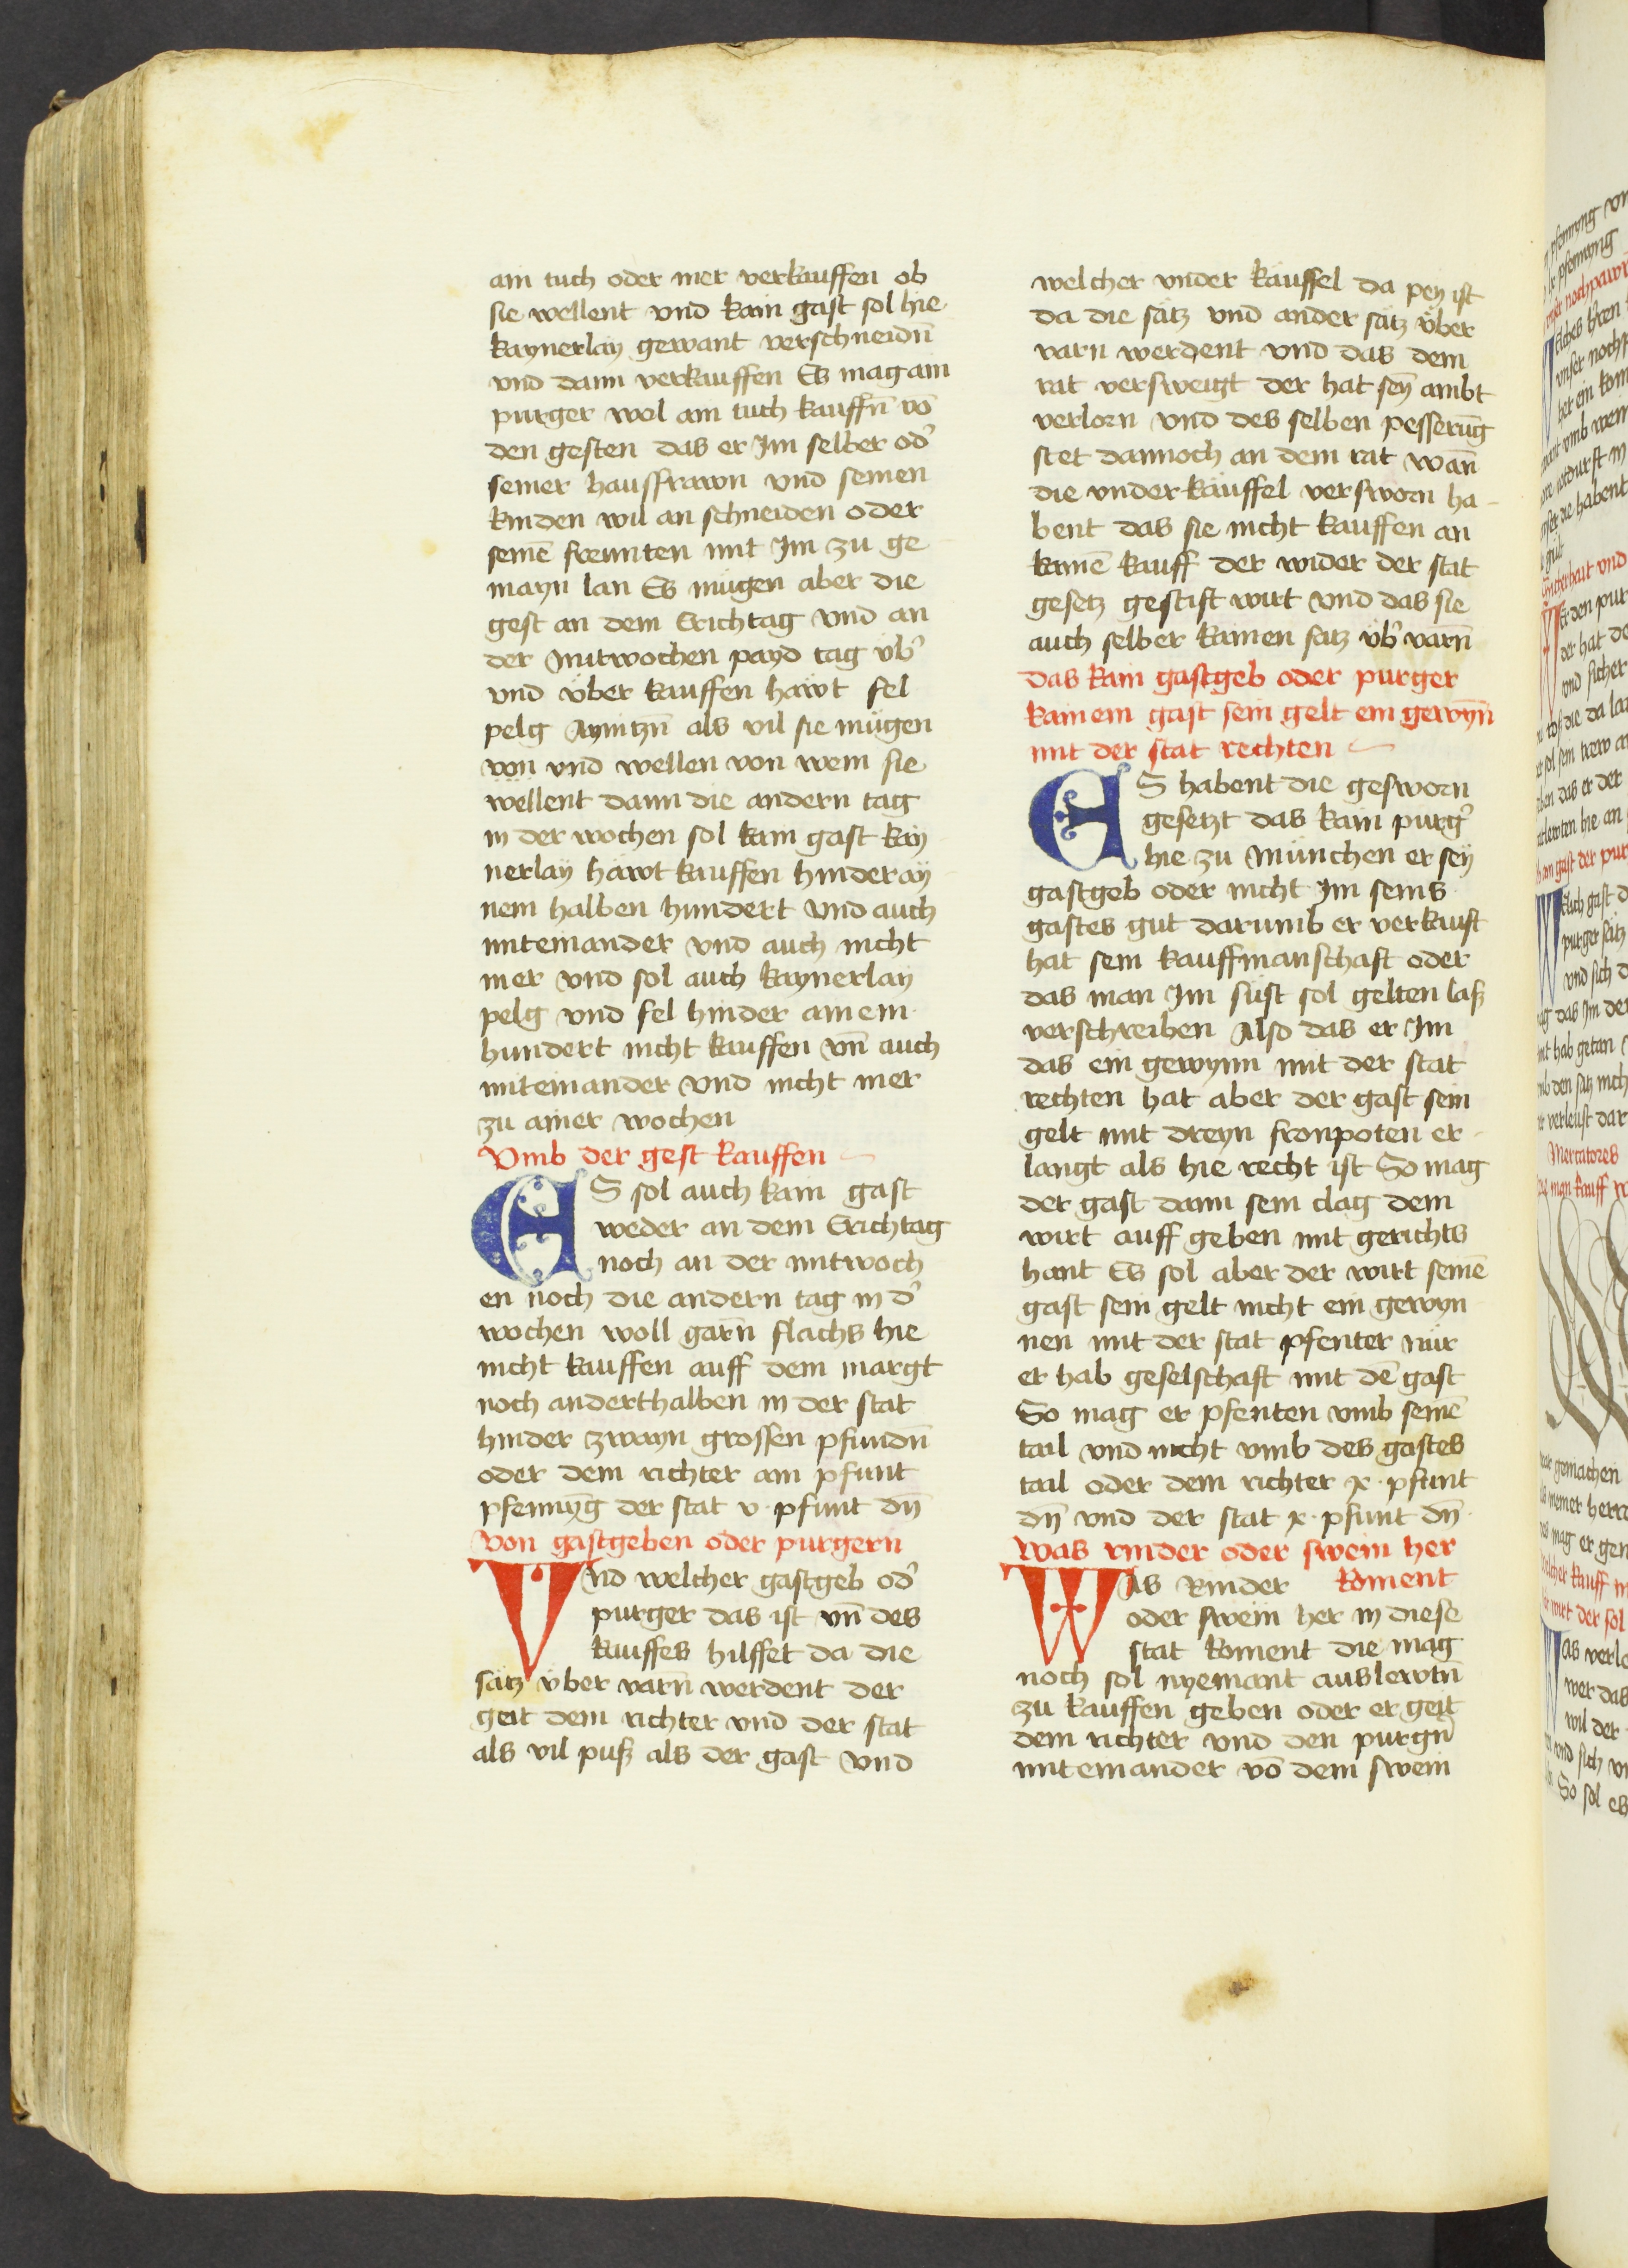 ain tuch oder mer verkauffen ob
sie wellent vnd kain gast sol hie
kaynerlay gewant verschneidn̄
vnd dann verkauffen Es mag ain
purger wol ain tuch kauffn̄ vō
den gesten das er Im selber od̓
seiner hausfrawn vnd seinen
kinden wil an schneiden oder
seinē freunten mit Im zu ge
mayn lan Es mügen aber die
gest an dem Erichtag vnd an
der Mitwochen payd tag v̈b̓
vnd v̈ber kauffen häwt fel
pelg Ayntzn̄ als vil sie mügen
von vnd wellen von wem sie
wellent dann die andern tag
in der wochen sol kain gast kay
nerlay häwt kauffen hinder ay
nem halben hundert vnd auch
miteinander vnd auch nicht
mer vnd sol auch kaynerlay
pelg vnd fel hinder ainem
hundert nicht kauffen vn̄ auch
miteinander vnd nicht mer
zu ainer wochen
Vmb der gest kauffen
ES sol auch kain gast
weder an dem Erichtag
noch an der mitwoch
en noch die andern tag in d̓
wochen woll garn flachs hie
nicht kauffen auff dem margt
noch anderthalben in der stat
hinder zwayn grossen pfundn̄
oder dem richter ain pfunt
pfennīg der stat v · pfunt dn̄
Von gastgeben oder purgern
Vnd welcher gastgeb od̓
purger das ist vn̄ des
kauffes hilffet da die
sätz v̈ber varn̄ werdent der
geit dem richter vnd der stat
als vil puß als der gast vnd
welcher vnder käuffel da pey ist
da die sätz vnd ander sätz v̈ber
varn werdent vnd das dem
rat versweigt der hat sey̅ ambt
verlorn vnd des selben pesserūg
stet dannoch an dem rat wan̄
die vnderkäuffel versworn ha-
bent das sie nicht kauffen an
kainē kauff der wider der stat
gesetz gestift wirt vnd das sie
auch selber kainen satz v̈b̓ varn̄
das kain gastgeb oder purger
kainem gast sein gelt ein gewyn̄
mit der stat rechten
ES habent die gesworn
gesetzt das kain purg̓
hie zu München er sey
gastgeb oder nicht Im seins
gastes gut darumb er verkauft
hat sein kauffmanschaft oder
das man Im süst sol gelten laß
verschreiben Also das er Im
das ein gewynn mit der stat
rechten hat aber der gast sein
gelt mit dreyn fronpoten er-
langt als hie recht ist So mag
der gast dann sein clag dem
wirt auff geben mit gerichts
hant Es sol aber der wirt seinē
gast sein gelt nicht ein gewyn
nen mit der stat pfenter nür
er hab geselschaft mit dē gast
So mag er pfenten vmb seinē
tail vnd nicht vmb des gastes
tail oder dem richter x · pfunt
dn̄ vnd der stat x · pfunt dn̄
Was rinder oder swein her
koment
WAs Rinder
oder swein her in diese
stat koment die mag
noch sol nyemant auslewtn̄
zu kauffen geben oder er geit
dem richter vnd den purgn̄
miteinander vō dem swein